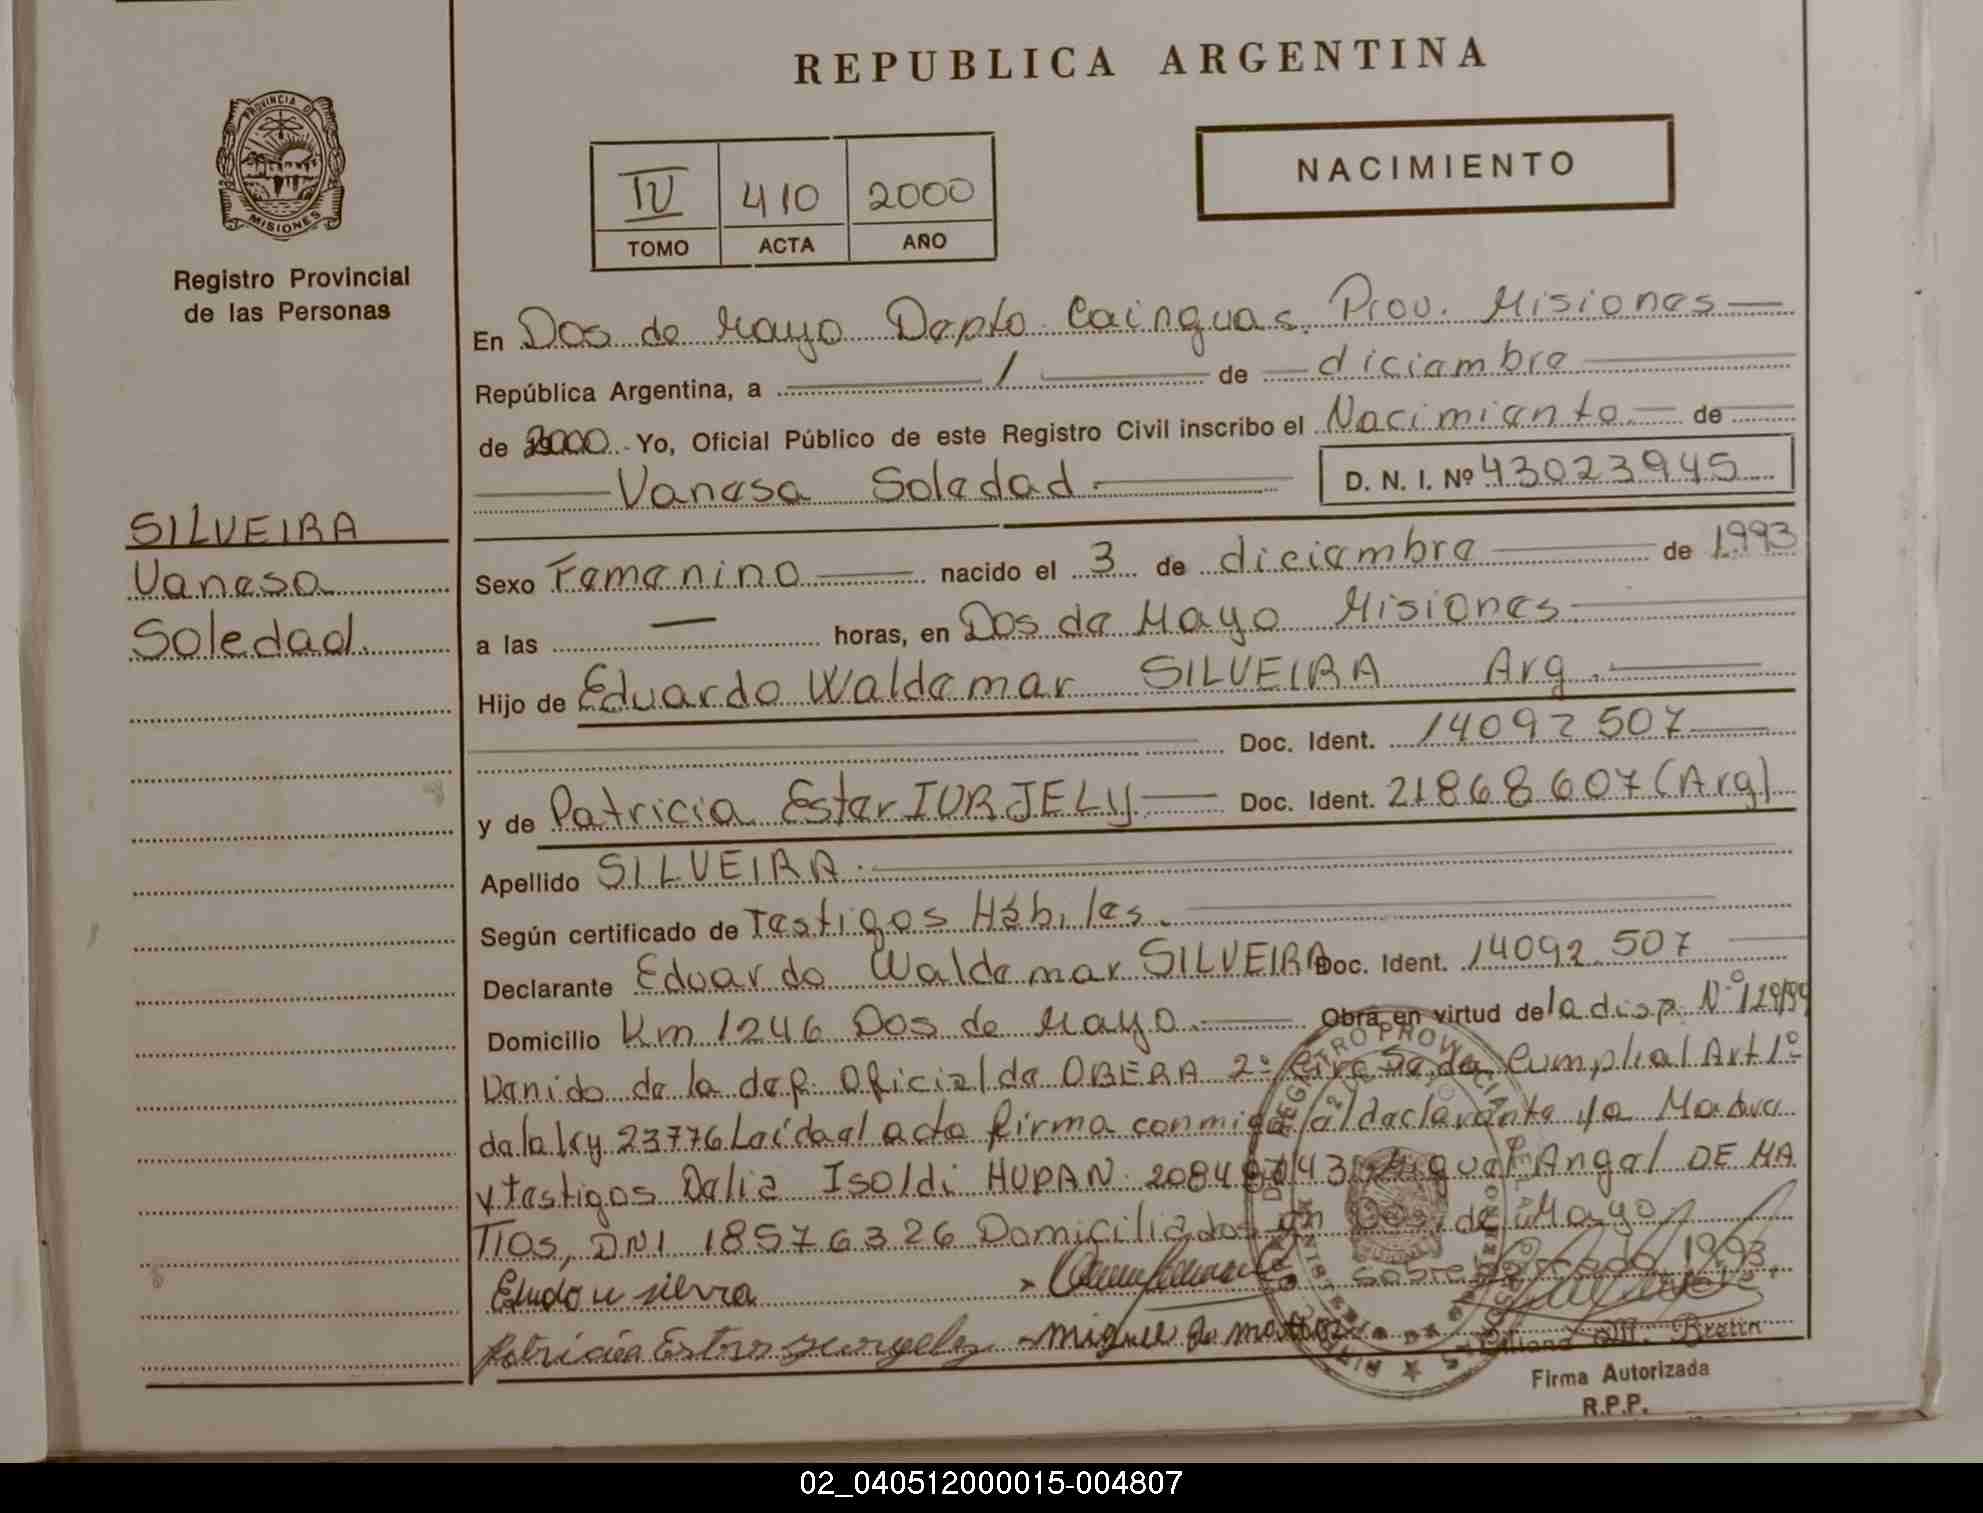 REPUBLICA ARGENTINA
PROVINCIA DE
MISIONES
Registro Provincial
de las Personas
NACIMIENTO
IV 410 2000
TOMO ACTA AÑO
En Dos de Mayo Depto Cainguas. Prov. Misiones
República Argentina, a 1 de diciembre
de 2000 Yo, Oficial Público de este Registro Civil inscribo el Nacimiento de
Vanesa Soledad D. N. I. Nº 43023945
SILVEIRA
Vanesa
Soledad.
Sexo Femenino nacido el 3 de diciembre de 1993
a las — horas, en Dos de Mayo Misiones
Hijo de Eduardo Waldemar SILVEIRA Arg.
Doc. Ident. 14092507
y de Patricia Ester IURJELY Doc. Ident. 21868607 (Arg)
Apellido SILVEIRA.
Según certificado de Testigos Hábiles.
Declarante Eduardo Waldemar SILVEIRA Doc. Ident. 14092.507
Domicilio Km 1246 Dos de Mayo. Obra en virtud de la disp. Nº
Venido de la dep. Oficial de OBERA 2º Cumpl al Art 1º
de la ley 23776 Leída el acta firma conmigo el declarante y la Madre
y testigos Delia Isoldi HUPAN Miguel Angel DE MA
TTOS, DNI 18576326 Domiciliados en Dos de Mayo
Sobreborrado 1993.
Firma Autorizada
R.P.P.
02_040512000015-004807